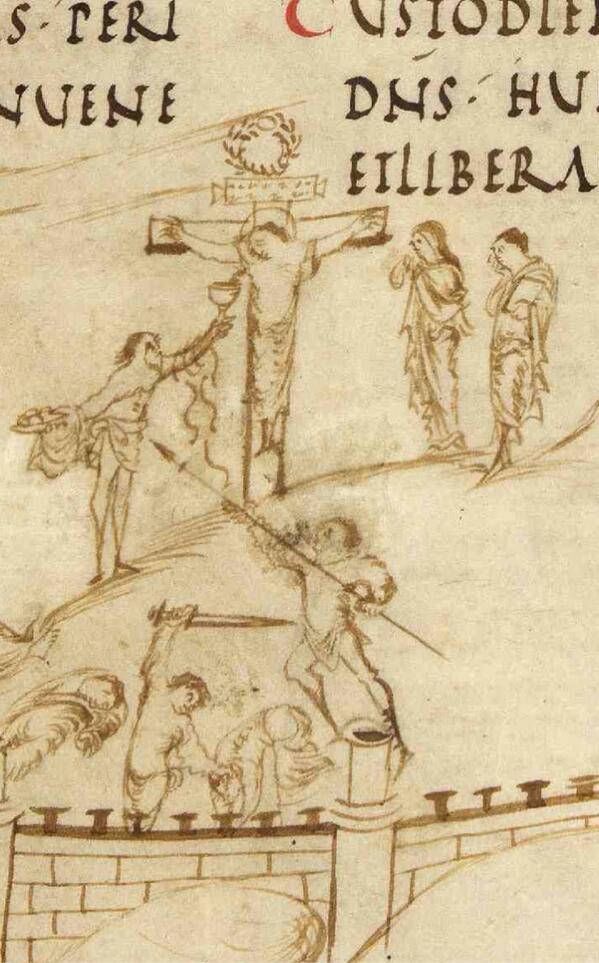 S· PERI
NUENE
CUSTODIE
DNS· HU
ETLIBERA